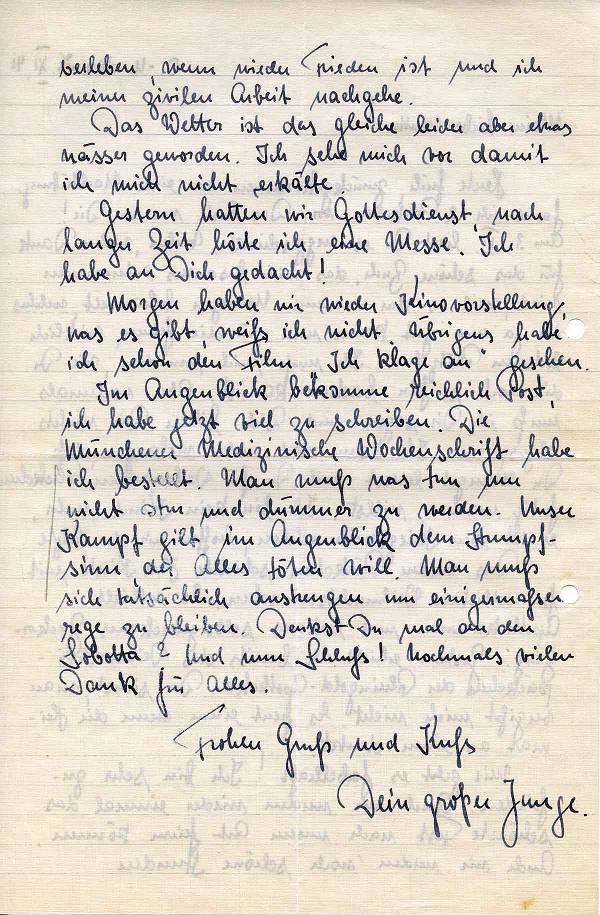 verleben, wenn wieder Frieden ist und ich
meiner zivilen Arbeit nachgehe.
Das Wetter ist das gleiche leider aber etwas
nässer geworden. Ich sehe mich vor damit
ich mich nicht erkälte.
Gestern hatten wir Gottesdienst, nach
langer Zeit hörte ich eine Messe. Ich
habe an Dich gedacht!
Morgen haben wir wieder Kinovorstellung,
was es gibt weiß ich nicht. Übrigens habe
ich schon den Film "Ich klage an" gesehen.
Im Augenblick bekomme reichlich Post,
ich habe jetzt viel zu schreiben. Die
Münchener Medizinische Wochenschrift habe
ich bestellt. Man muß was tun um
nicht stur und dümmer zu werden. Unser
Kampf gilt im Augenblick dem Stumpf-
sinn der Alles töten will. Man muß
sich tatsächlich anstrengen um einigermaßen
rege zu bleiben. Denkst Du mal an den
Sobotta? Und nun Schluß! Nochmals vielen
Dank für alles.
Frohen Gruß und Kuß
Dein großer Junge.